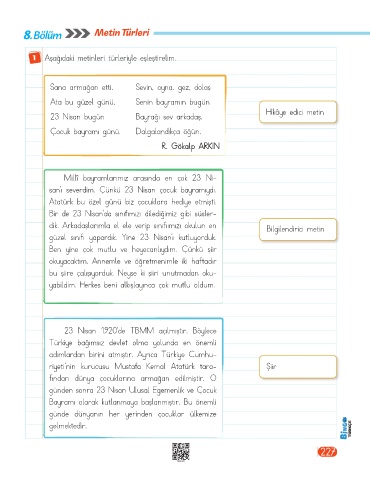 8. Bölüm
Metin Türleri
1 Aşağıdaki metinleri türleriyle eşleştirelim.
Sana armağan etti.
Ata bu güzel günü,
23 Nisan bugün
Çocuk bayramı günü.
Sevin, oyna, gez, dolaş
Senin bayramın bugün.
Bayrağı sev arkadaş,
Dalgalandıkça öğün.
R. Gökalp ARKIN
Hikâye edici metin
Millî bayramlarımız arasında en çok 23 Ni-
san'ı severdim. Çünkü 23 Nisan çocuk bayramıydı.
Atatürk bu özel günü biz çocuklara hediye etmişti.
Bir de 23 Nisan'da sınıfımızı dilediğimiz gibi süsler-
dik. Arkadaşlarımla el ele verip sınıfımızı okulun en
güzel sınıfı yapardık. Yine 23 Nisan'ı kutluyorduk.
Ben yine çok mutlu ve heyecanlıydım. Çünkü şiir
okuyacaktım. Annemle ve öğretmenimle iki haftadır
bu şiire çalışıyorduk. Neyse ki şiiri unutmadan oku-
yabildim. Herkes beni alkışlayınca çok mutlu oldum.
Bilgilendirici metin
23 Nisan 1920'de TBMM açılmıştır. Böylece
Türkiye bağımsız devlet olma yolunda en önemli
adımlardan birini atmıştır. Ayrıca Türkiye Cumhu-
riyeti'nin kurucusu Mustafa Kemal Atatürk tara-
fından dünya çocuklarına armağan edilmiştir. O
günden sonra 23 Nisan Ulusal Egemenlik ve Çocuk
Bayramı olarak kutlanmaya başlanmıştır. Bu önemli
günde dünyanın her yerinden çocuklar ülkemize
gelmektedir.
Şiir
TÜRKÇE
227